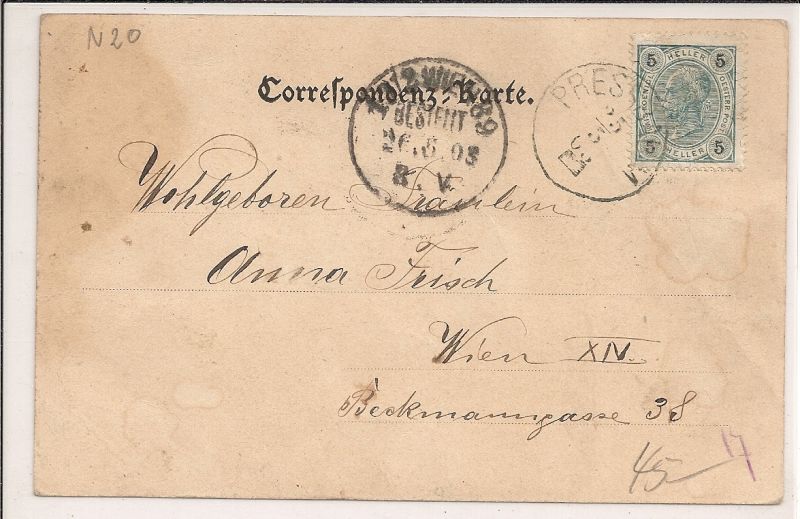 N20
5 HELLER 5
PRES
Correspondenz-Karte.
WIEN 89
BESTELLT
26. 5 03
8. V.
5 HELLER 5
Wohlgeboren Fräulein
Anna Frisch
Wien XIV.
Beckmanngasse 38
45
17